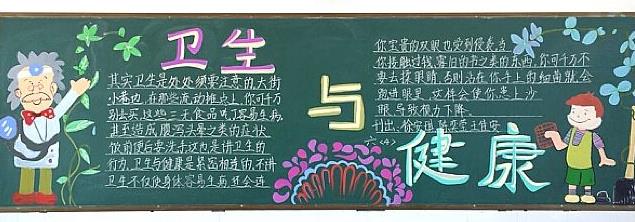 卫生
其实卫生是处处须要注意的,大街
小巷边,在那些流动摊点上,你可千万
别去买,这些三无食品叫了容易生病,
甚至造成腹泻头晕之类的症状.
饭前便后要洗手这也是讲卫生的
行为,卫生与健康是紧密相连的,不讲
卫生不仅使身体容易生病,还会连
与
你宝贵的双眼也受到侵袭,当
你接触过钱、书旧的书之类的东西,你可千万不
要去揉眼睛,否则沾在你手上的细菌就会
跑进眼里,这样会使你患上沙
眼,导致视力下降。
六〈4〉
健康